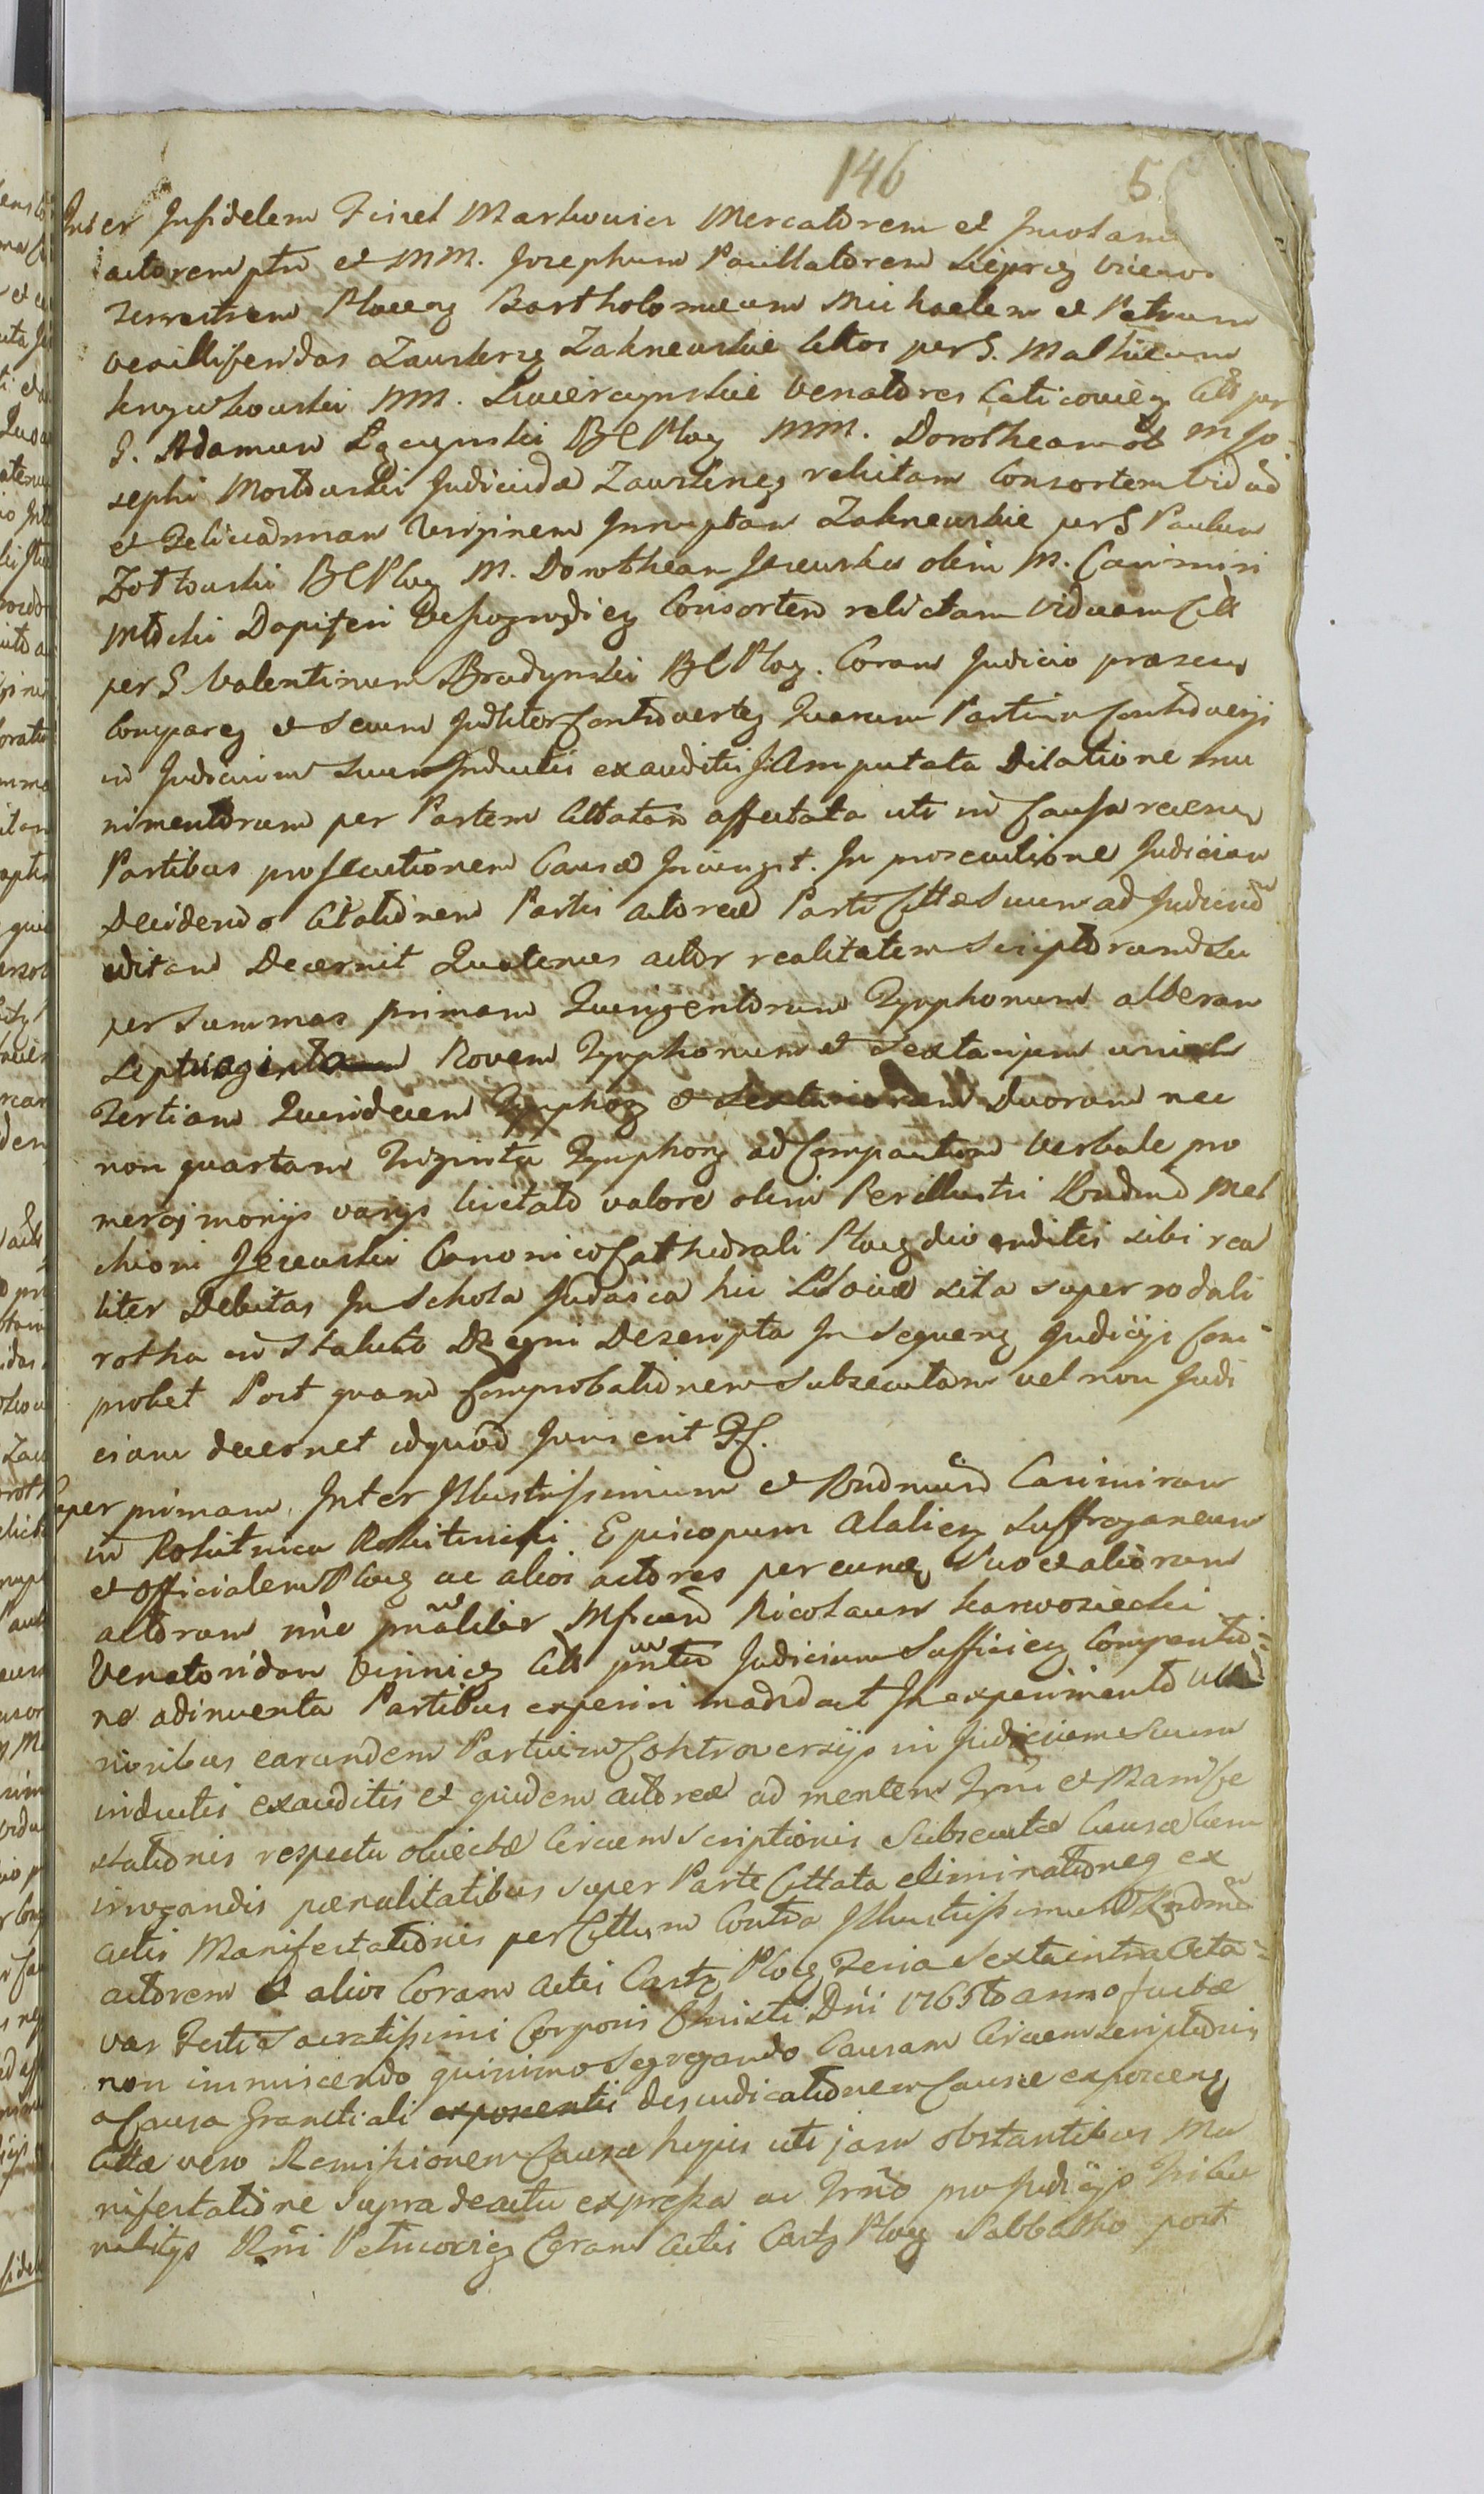 146 5
Inter Infidelem Fisiel Markowicz Mercatorem et Incolam
actorem ptn et MM. Josephum Pocillatorem Lieprcz
Terrestrem Plocen Bartholomeum Michaelem et Petrum
vexilliferidas Zawskrzen Zakrzewskie Cittos per S. Mathæum
MM. Zwierzynskie Venatores Laticovien Citt per
S. Adamum Łączynski BCPloc MM. Dorotheam ol M Jo
sephi Mostowski Judicidæ Zawskrnen relictam Consortem Viduã
et Feliciannam Virginem Innuptam Zakrzewskie per S Paulum
Zottowski BCPloc M. Dorotheam Jezewska olim M. Casimiri
Mtocki Dapiferi Wyszogrodien Consortem relictam viduam Citt
per S Valentinum Bradzynski BCPloc. Coram Judicio præsen
Comparen et secum Juditer Controverten Quarum Partium Controversijs
in Judicium suum Inductis exauditis Jud Amputata Dilatione mu
nimentorum per Partem Cittatam affectata uti in Causa recenti
Partibus prosecutionem Causæ Iniungit. In prosecutione Judicium
Decidendo Citationem Partis actoreæ Parti Cittæ suum ad Judicium
editam Decernit Quatenus actor realitatem scriptorum su
per summas primam Quingentorum Tynphonum alteram
Septuaginta Novem Tynphonum et Sextarijum unius
Tertiam Quindecem Tynphon et Duorum nec
non quartam Triginta Tynphon ad Compactum Verbale pro
mercimonijs varijs licitato valore olim Perillustri Rndmo Mel
chiori Jezewski Canonico Cathedrali Ploc divenditis sibi rea
liter Debitas In Schola Judaica hic Plociæ sita super rodali
rotha in Statuto Regni Descripta In sequen Judicijs Com
probet Post quam Comprobationem subsecutam vel non Judi
cium decernet idquod Juris erit Pf.
Super primam. Inter Illustrissimum et Rndmum Casimirum
in Rokitnica Rokitnicki Episcopum Alalien Suffraganeum
et Officialem Ploc ac alios actores per eumq suo et aliorum
actorum nñe prñaliter Mficum Nicolaum Karwosiecki
Venatoridam Vinnicen Citt pñtn Judicium Sufficien Comparitio=
ne adinventa Partibus experiri mandat In experimento
rioribus earundem Partium Controversijs in Judicium suum
inductis exauditis et quidem actoreæ ad mentem Trmi et Manife
stationis respectu obiectæ Circumscriptionis subsecutæ Causæ Cum
irrogandis pænalitatibus super Parte Cittata eliminationeq ex
actis Manifestationis per Cittum Contra Illustrissimum Rndmũ
actorem et alios Coram Actis Castr Ploc Feria Sexta intra Octa=
vas Festi Sacratissimi Corporis Christi Dñi 1765to anno factæ
non immiscendo quinimo segregando Causam Circumscriptionis
a Causa Granitiali exposcentis desudicationem Causæ exposcen
Cittæ vero Remissionem Causæ hujus uti jam obstantibus Ma
nifestatione supra de actu expressa ac Trño pro Judicijs Tribu
nalitijs Rñi Petricovien Coram Actis Castr Ploc Sabbatho post